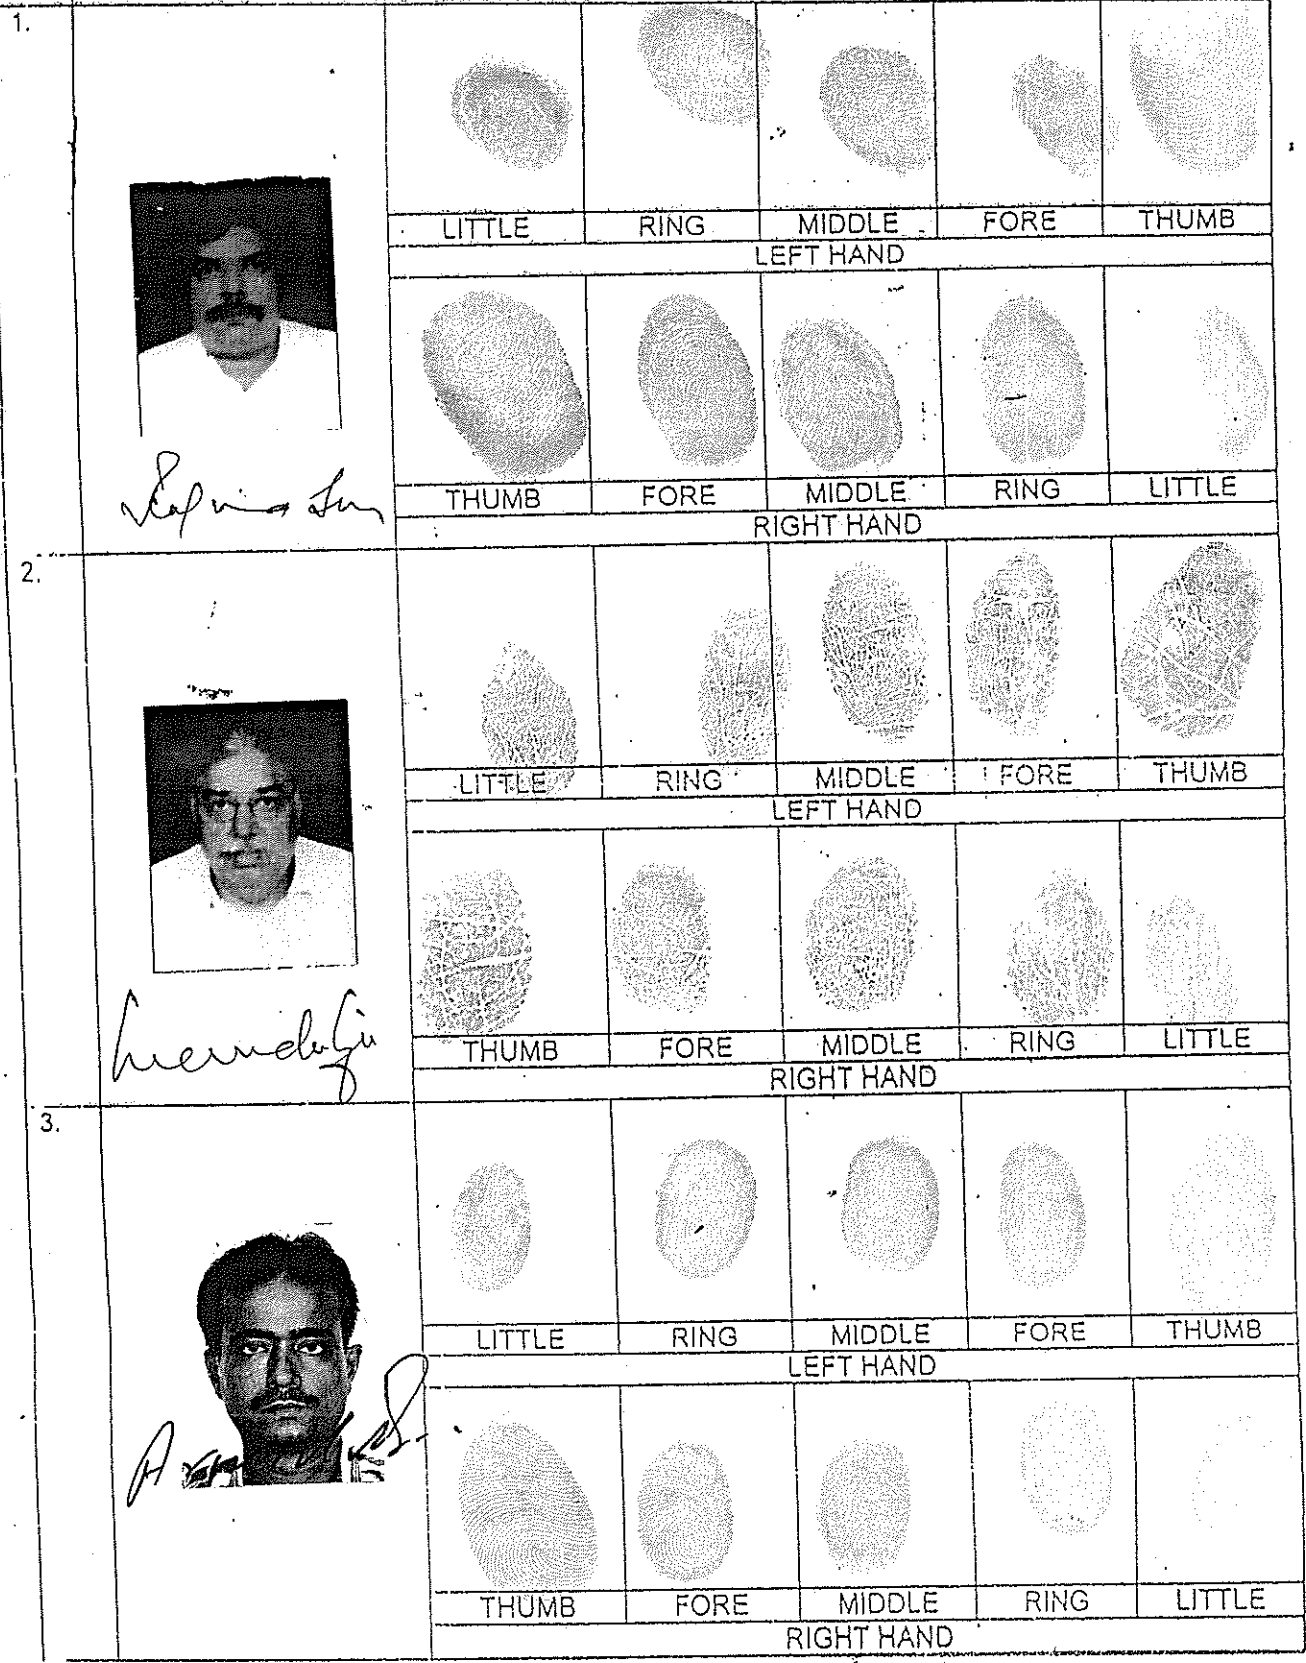 1.
LITTLE RING MIDDLE FORE THUMB
LEFT HAND
THUMB FORE MIDDLE RING LITTLE
RIGHT HAND
2.
LITTLE RING MIDDLE FORE THUMB
LEFT HAND
THUMB FORE MIDDLE RING LITTLE
RIGHT HAND
3.
LITTLE RING MIDDLE FORE THUMB
LEFT HAND
THUMB FORE MIDDLE RING LITTLE
RIGHT HAND